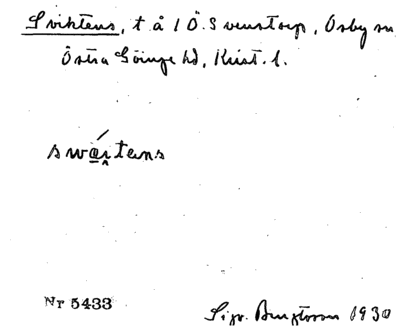 Svihtens, t å 1 Ö. Svenstorp, Osby sn
Östra Göinge hd, Krist. l.
swai̯tens
Nr 5433
Sigv. Bengtsson 1930